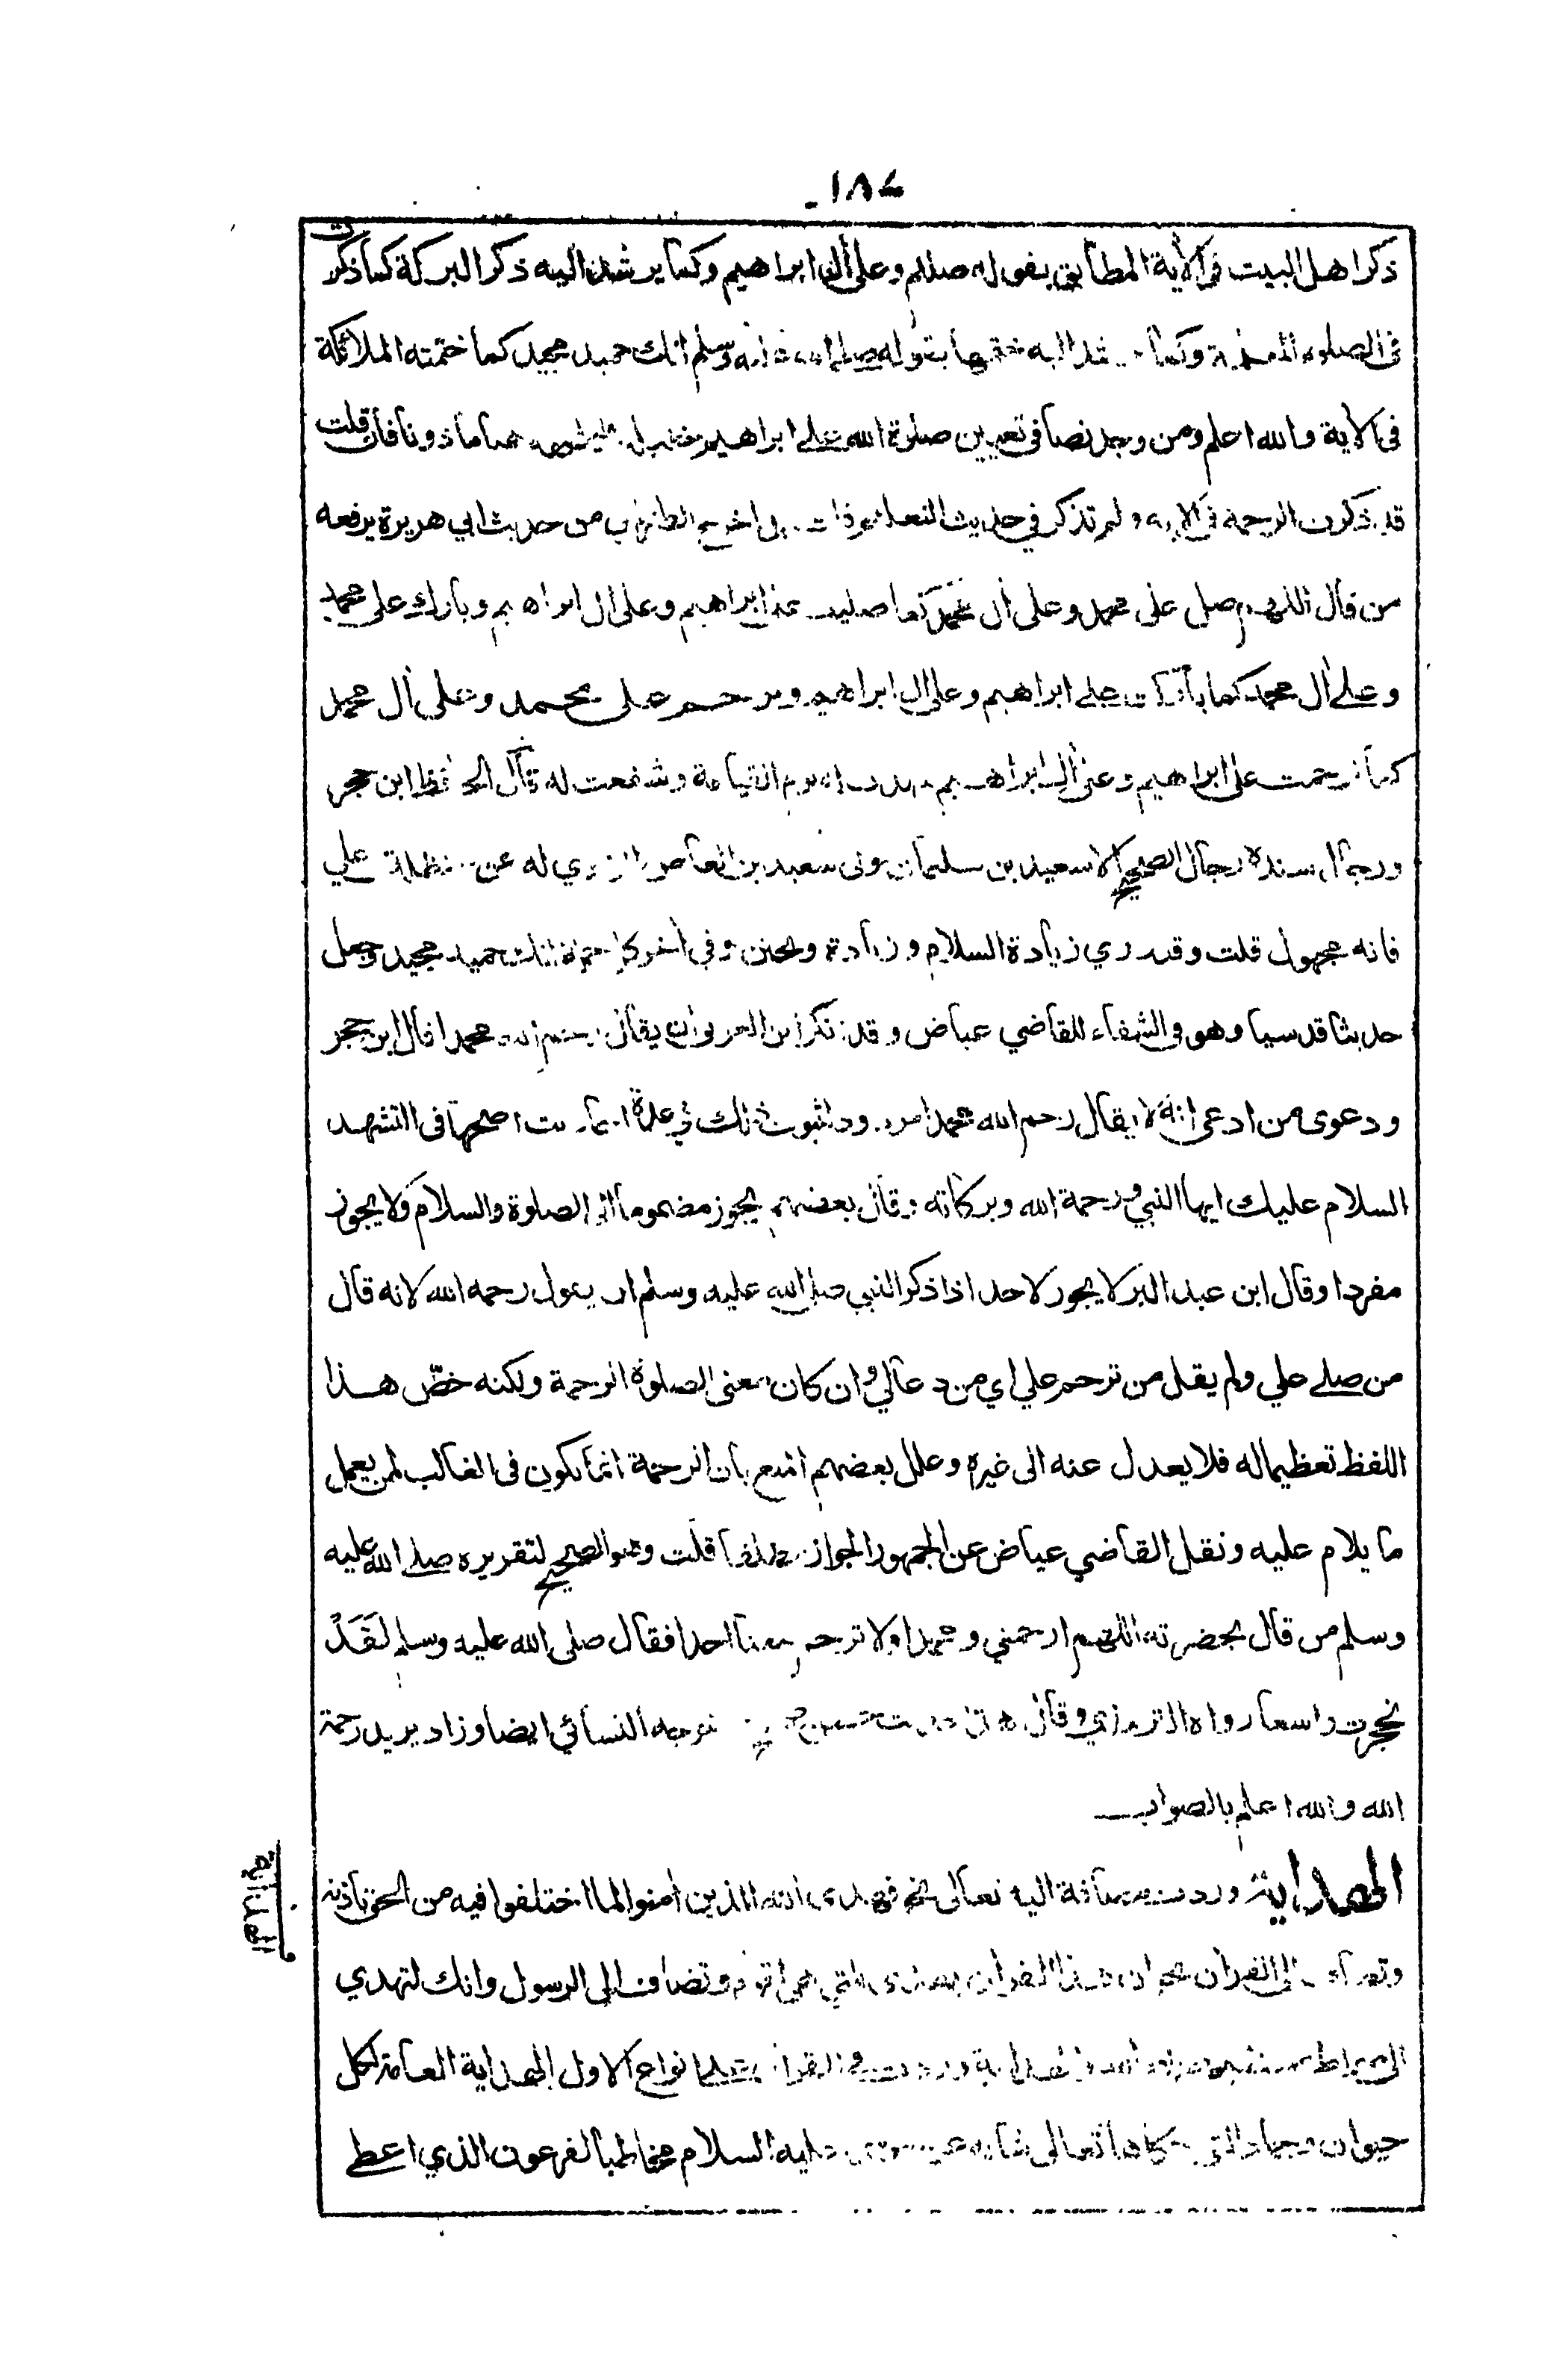 ١٨٤
ذكر اهل البيت فى الأية المطابق بقوله صللم وعلى أل ابراهيم وكما يرشد اليه ذكر البركة كما ذكرت
فى الصلوة وكما اليه ختمها بقوله وسلم انك حميد مجيد كما ختمته الملائكة
فى الاية والله اعلم ومن وجد نصا فى تعيين صلوة الله على ابراهيم فان قلت
قد ذكرت الرحمة فى الاية ولم تذكر فى حديث اخرج من حديث ابي هريرة يرفعه
من قال اللهم صل على محمد وعلى أل محمد كما صليت على ابراهيم وعلى ال ابراهيم وبارك على محمد
وعلى أل محمد كما باركت على ابراهيم وعلى ال ابراهيم وترحم على محمد وعلى أل محمد
كما ترحمت على ابراهيم وعلى أل ابراهيم يوم القيامة وشفعت له قال الحافظ ابن حجر
ورجال سنده رجال الصحيح الا سعيد بن سليمان مولى سعيد بن العاص الراوي له عن حنظلة علي
فانه مجهول قلت وقد روي زيادة السلام وزيادة وتحنن وفي أخر كل انك حميد مجيد وجعل
حديثا قدسيا وهو فى الشفاء للقاضي عياض وقد انكر ابن العربي ان يقال محمدا قال ابن حجر
ودعوى من ادعى انه لا يقال رحم الله محمدا لثبوت ذلك في عدة اصحها فى التشهد
السلام عليك ايها النبي ورحمة الله وبركاته وقال بعضهم يجوز مضموما الى الصلوة والسلام ولا يجوز
مفردا وقال ابن عبد البر لا يجوز لاحد اذا ذكر النبي صلى الله عليه وسلم ان يقول رحمه الله لانه قال
من صلى علي ولم يقل من ترحم علي اي من دعالي وان كان معنى الصلوة الرحمة ولكنه خصّ هذا
اللفظ تعظيما له فلا يعدل عنه الى غيره وعلل بعضهم المنع بان الرحمة انما يكون فى الغالب لمن يعمل
ما يلام عليه ونقل القاضي عياض عن الجمهور الجواز مطلقا قلت وهو الصحيح لتقريره صلى الله عليه
وسلم من قال بحضرته اللهم ارحمني ومحمدا ولا ترحم معنا احدا فقال صلى الله عليه وسلم لَقَدْ
تحجرت واسعا رواه الترمذي وقال النسائي ايضا وزاد يريد رحمة
الله والله اعلم بالصواب
الهداية وردت مضافة اليه تعالى نحو فهدى الله الذين أمنوا لما اختلفوا فيه من الحق باذنه
الى القرأن نحو ان هذا القرأن يهدى للتي هي اقوم وتضاف الى الرسول وانك لتهدي
الى صراط مستقيم القرأن على انواع الاول الهداية العامة لكل
حيوان وجماد التي تعالى عن موسى عليه السلام مخاطبا لفرعون الذي اعطى
الهداية